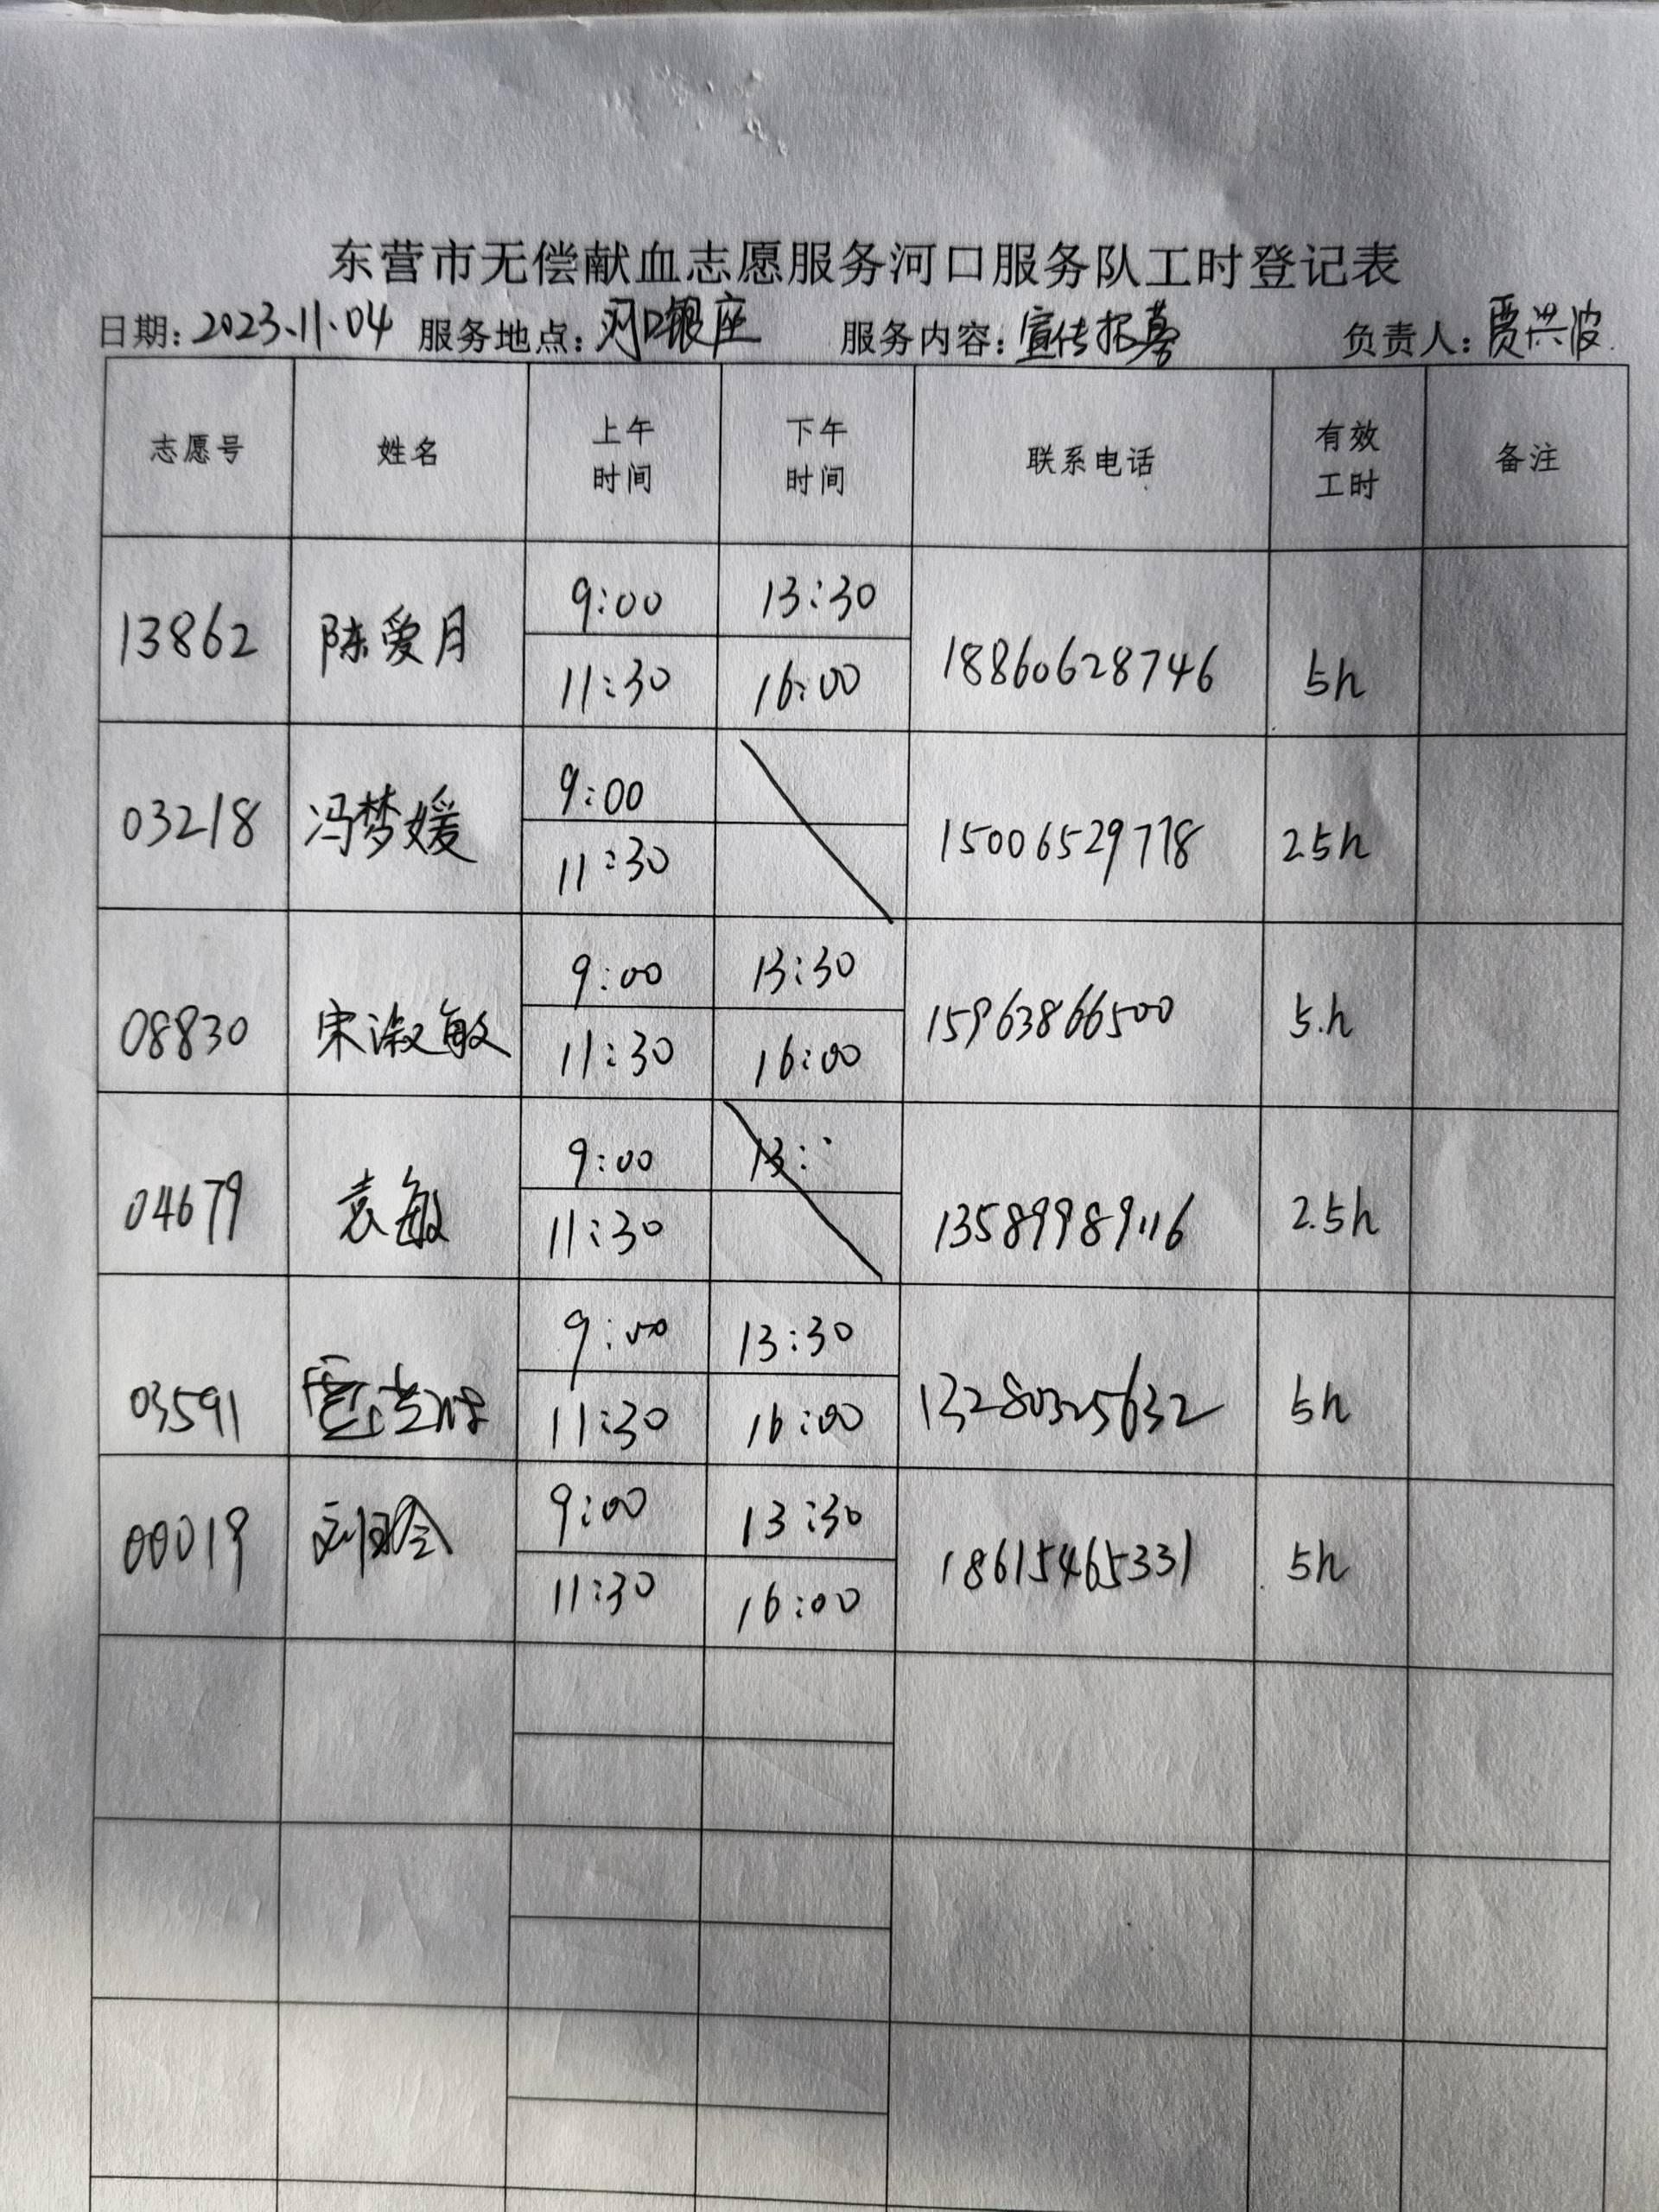 东营市无偿献血志愿服务河口服务队工时登记表
日期：2023.11.04 服务地点：河口银座 服务内容：宣传招募 负责人：贾洪波
志愿号 姓名 上午时间 下午时间 联系电话 有效工时 备注
13862 陈爱月 9:00 13:30 18860628746 5h
11:30 16:00
03218 冯梦媛 9:00 15006529718 25h
11:30
08830 宋淑敏 9:00 13:30 15963866500 5.h
11:30 16:00
04679 袁敏 9:00 13: 13589989116 2.5h
11:30
03591 9:00 13:30 13280325632 5h
11:30 16:00
00019 刘 9:00 13:30 18615465331 5h
11:30 16:00